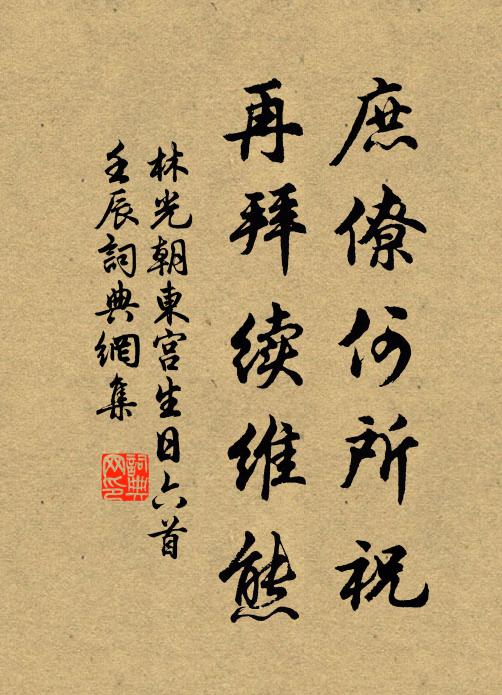 庶僚何所祝
再拜续维熊
林光朝東宫生日六首
壬辰詞典網集
詞典
网印